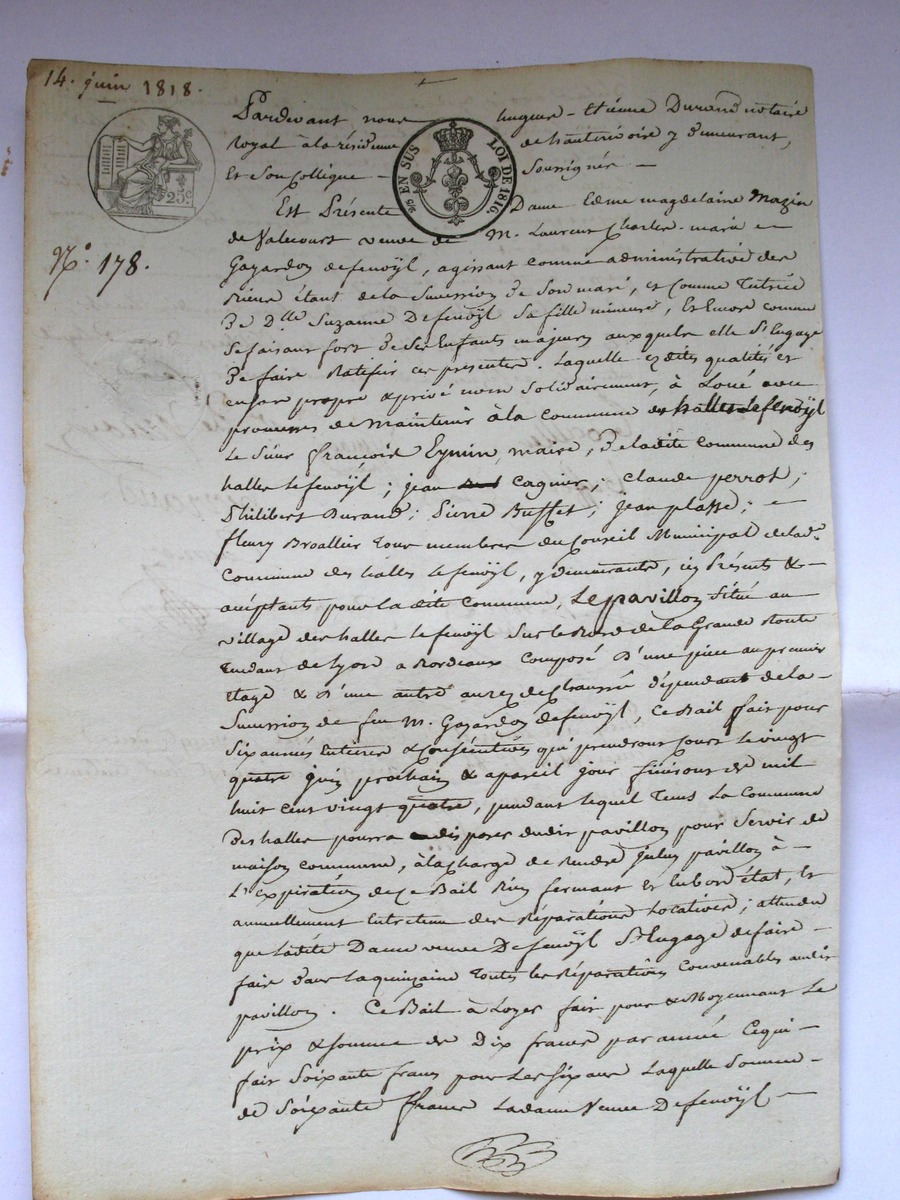 14. juin 1818.
25c
25c EN SUS LOI DE 1816.
N.o 178.
Pardevant nous hugues-Etienne Durand notaire
Royal à la résidence de hauterivoire y demeurant,
Et Son Collègue - Soussignés -
Est Présente Dame Edme magdelaine Mazin
de Valecourt veuve de M. Laurent Charles-marie -
Gayardon defenoÿl, agissant comme administratrice des
Biens étant de la Succession De Son mari, et comme Tutrice
De Dlle Suzanne DefenoÿL Sa fille mineure, Et Encore comme
Se faisant fort De Ses Enfants majeurs auxquels elle S'Engage
De faire Ratifier ces presentes. Laquelle ez dites qualités et
en son propre & privé nom Solidairement, à Loué avec
promesses de maintenir à la commune des halles Lefenoÿl
Le Sieur françois Eymin, maire, De ladite commune des
halles Lefenoÿl; jean Cagnier; claude perrot;
Philibert Durand; Pierre Buffet; jean plasse; -
fleury Broallier tous membres du Conseil Municipal de lad.e
Commune des halles Lefenoÿl, y demeurants, icy Présents & -
acceptants pour la dite commune, Le pavillon Situé au
village des halles Lefenoÿl Sur le Bord de la Grande Route
Tendant de Lyon a Bordeaux composé D'une pièce au premier
Etage & D'une autre au rez de chaussée dépendant de la -
Succession de feu M. Gayardon DefenoÿL, Ce Bail fait pour
Six années Entieres & Consécutives qui prendront cours Le vingt
quatre juin prochain & apareil jour finiront de mil
huit cent vingt quatre, pendant lequel Tems La Commune
Des halles pourra disposer dudit pavillon pour Servir de
maison commune, à la charge de Rendre icelui pavillon à -
L'expiration de ce Bail Bien fermant et En bon état, Et
annuellement Entretenu des Réparations Locatives; attendu
que ladite Dame veuve DefenoÿL S'Engage de faire -
faire Dans la quinzaine Toutes les Réparations Convenables audit
pavillon. Ce Bail à Loyer fait pour & Moyennant Le
prix & Somme de Dix francs par année Cequi -
fait Soixante francs pour Les Six ans Laquelle Somme -
de Soixante francs La dame Veuve DefenoÿL -